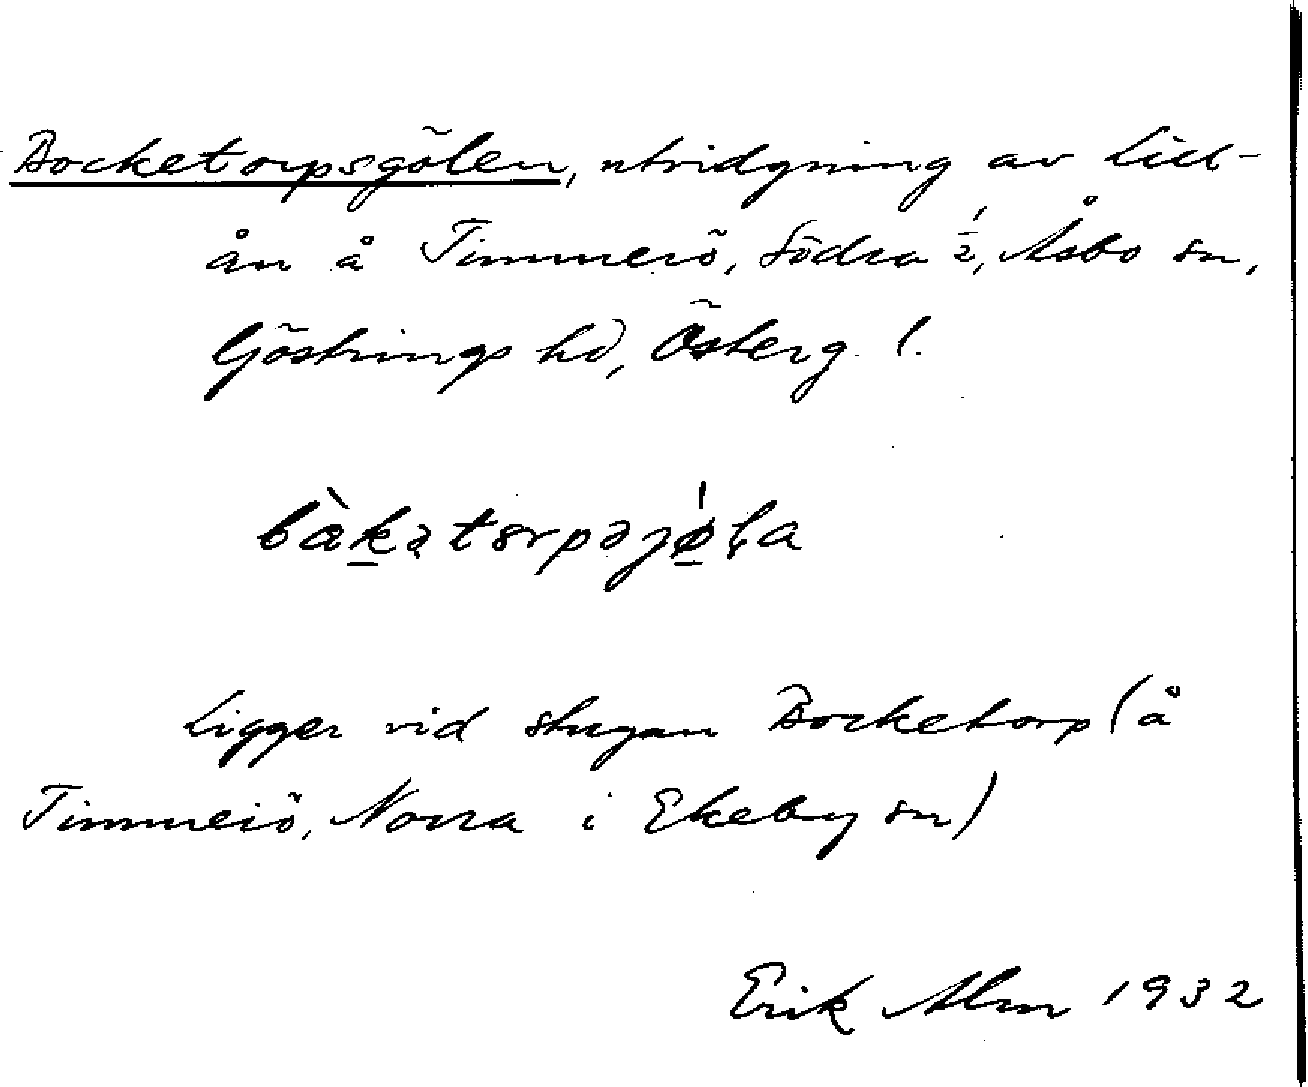 Bocketorpsgölen, utvidgning av Lill-
ån å Timmerö, Södra ½, Åsbo sn,
Göstrings hd, Österg. l.
bàkatorpajǿla
Ligger vid stugan Bocketorp (å
Timmerö, Norra i Ekeby sn)
Erik Alm 1932